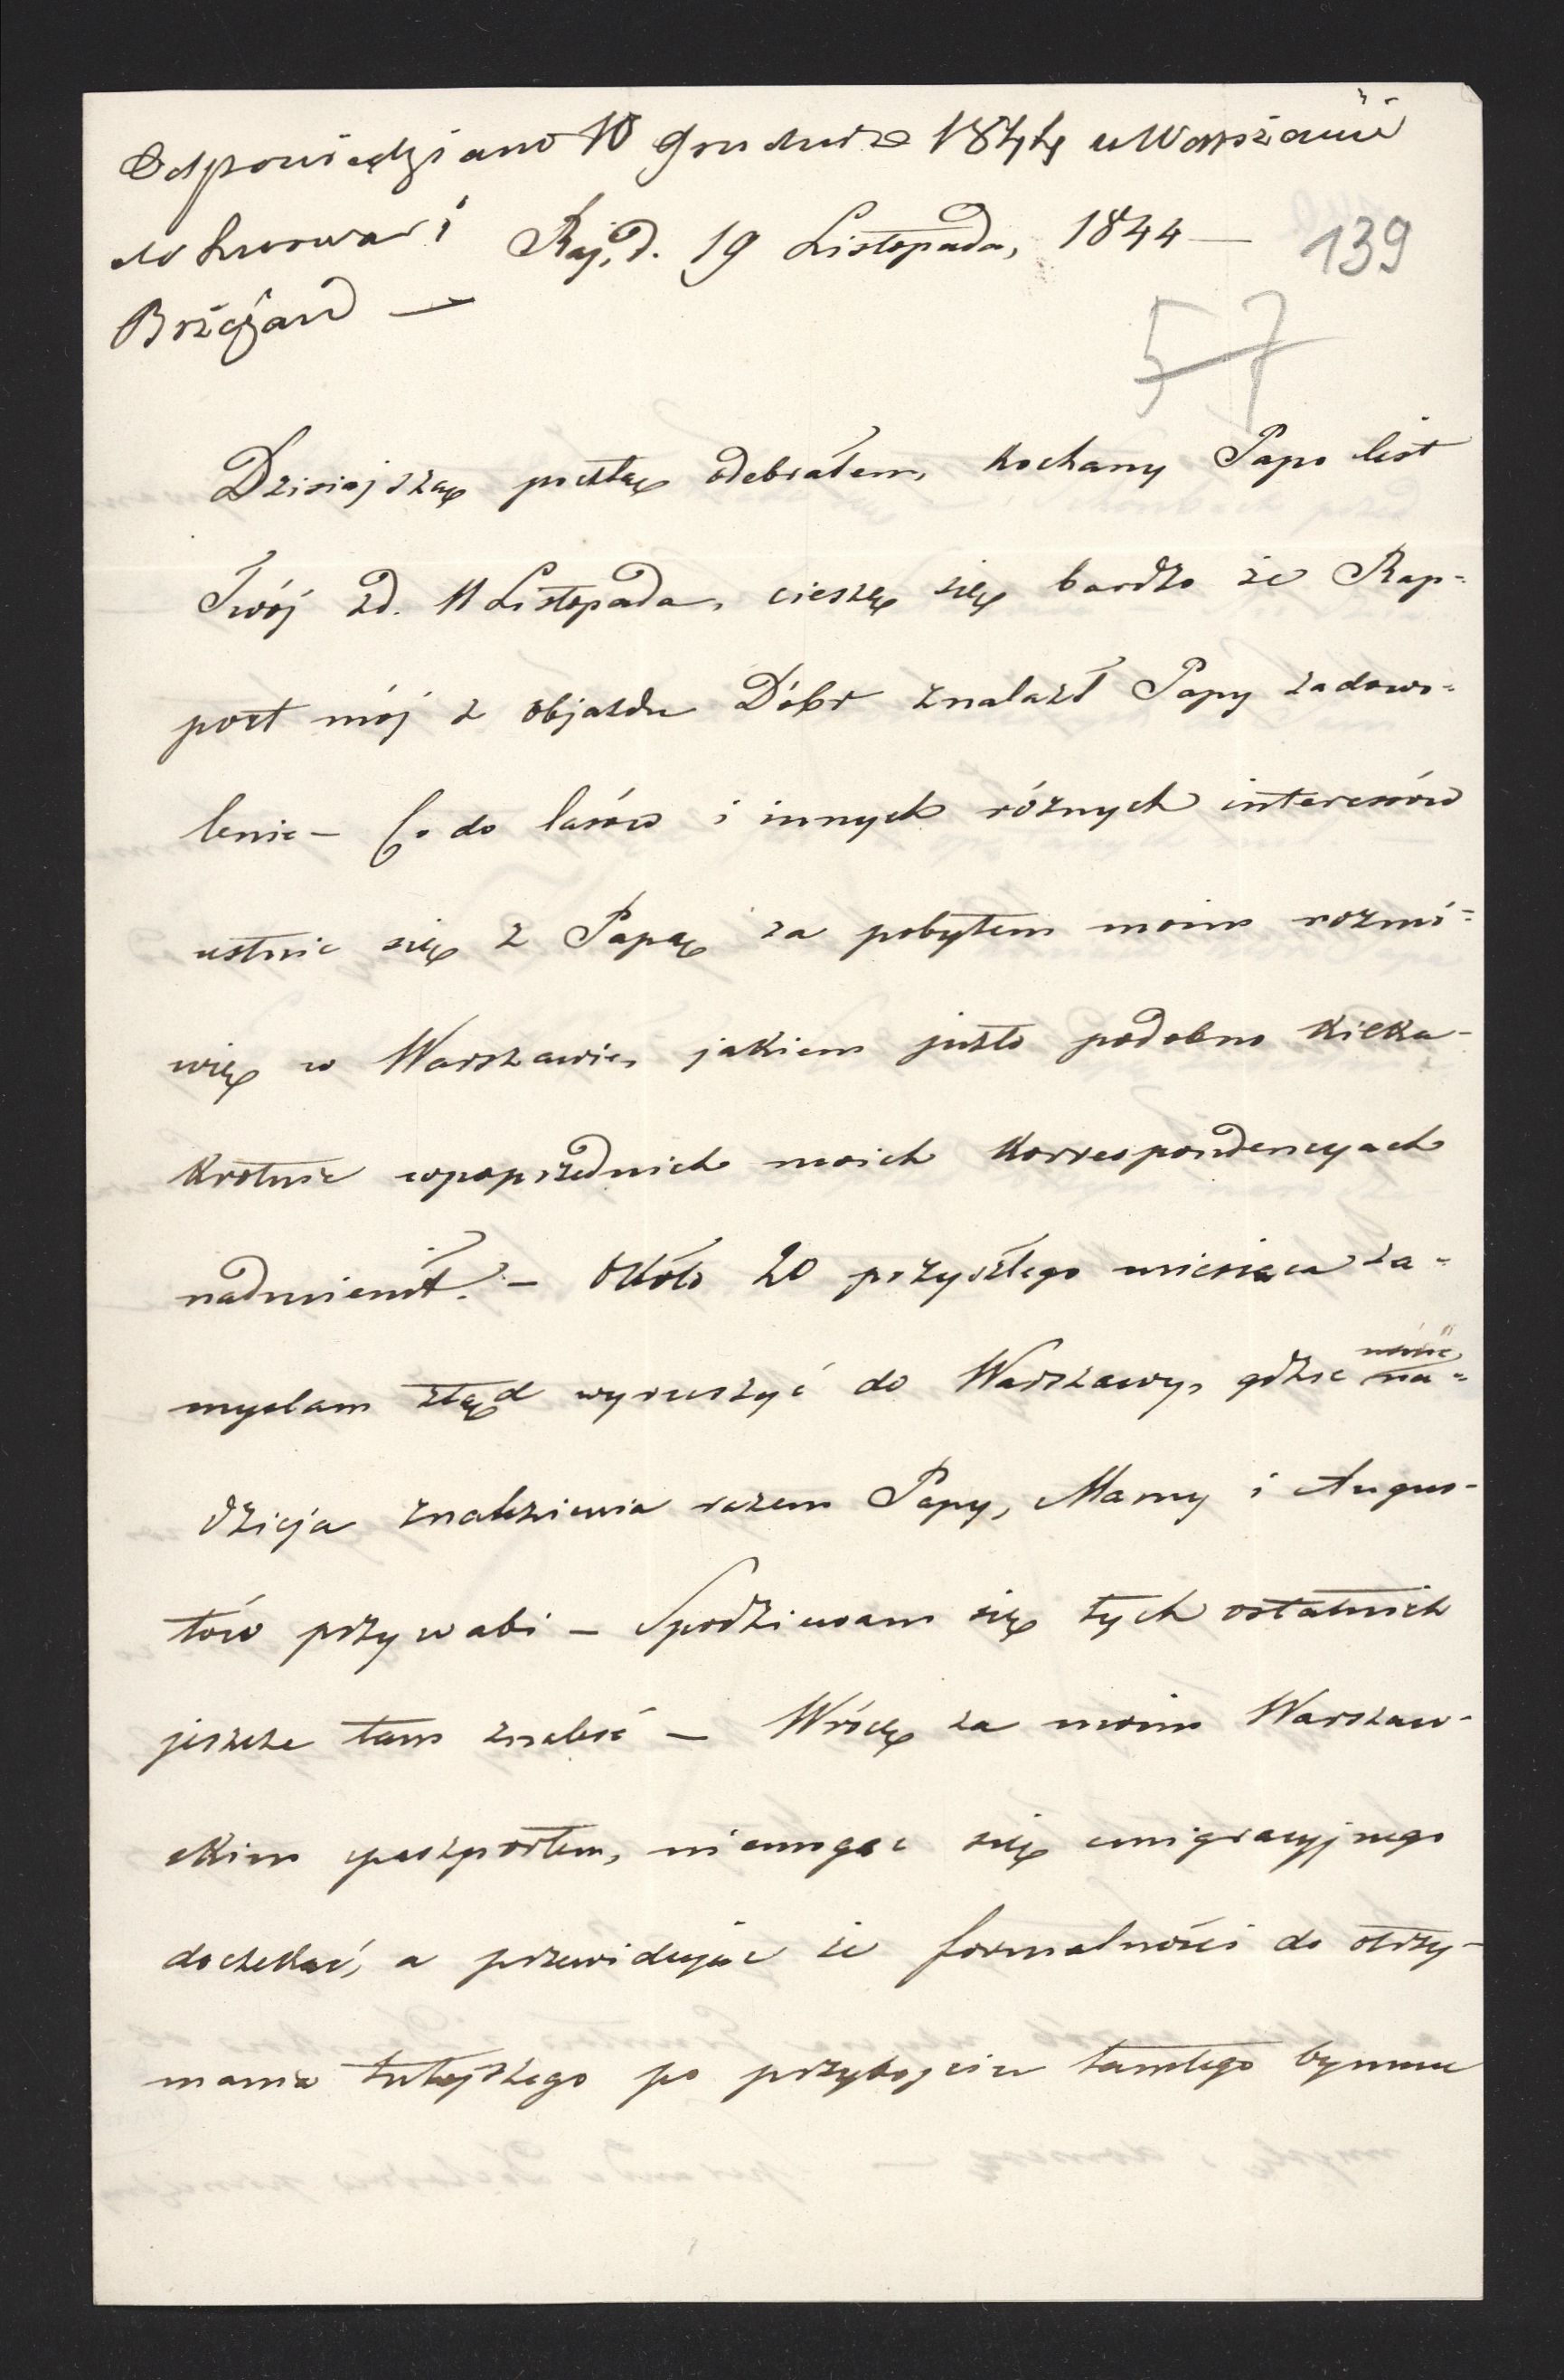 Odpowiedziano 10 Grudnia 1844 w Warszawie
do Lwowa i Raj, d. 19 Listopada, 1844 — 139
Brzeżan —
57
Dzisiejszą pocztą odebrałem, kochany Papo list
Twój zd. 11 Listopada, cieszę się bardzo że Rap-
port mój z objazdu Dóbr znalazł Papy zadowo-
lenie — Co do lasów i innych różnych interesów
ustnie się z Papą za pobytem moim rozmó-
wię w Warszawie, jakiem jużto podobno kilka-
krotnie wpoprzednich moich korrespondencyach
nadmienił. — Około 20 przyszłego miesiąca za-
myslam ztąd wyruszyć do Warszawy, gdzie mnie na-
dzieja znalezienia razem Papy, Mamy i Augus-
tów przywabi — Spodziewam się tych ostatnich
jeszcze tam znaleść — Wrócę za moim Warszaw-
skim paszportem, niemogąc się emigracyjnego
doczekać, a przewidując że formalności do otrzy-
mania tutejszego po przybyciu tamtego bymnie